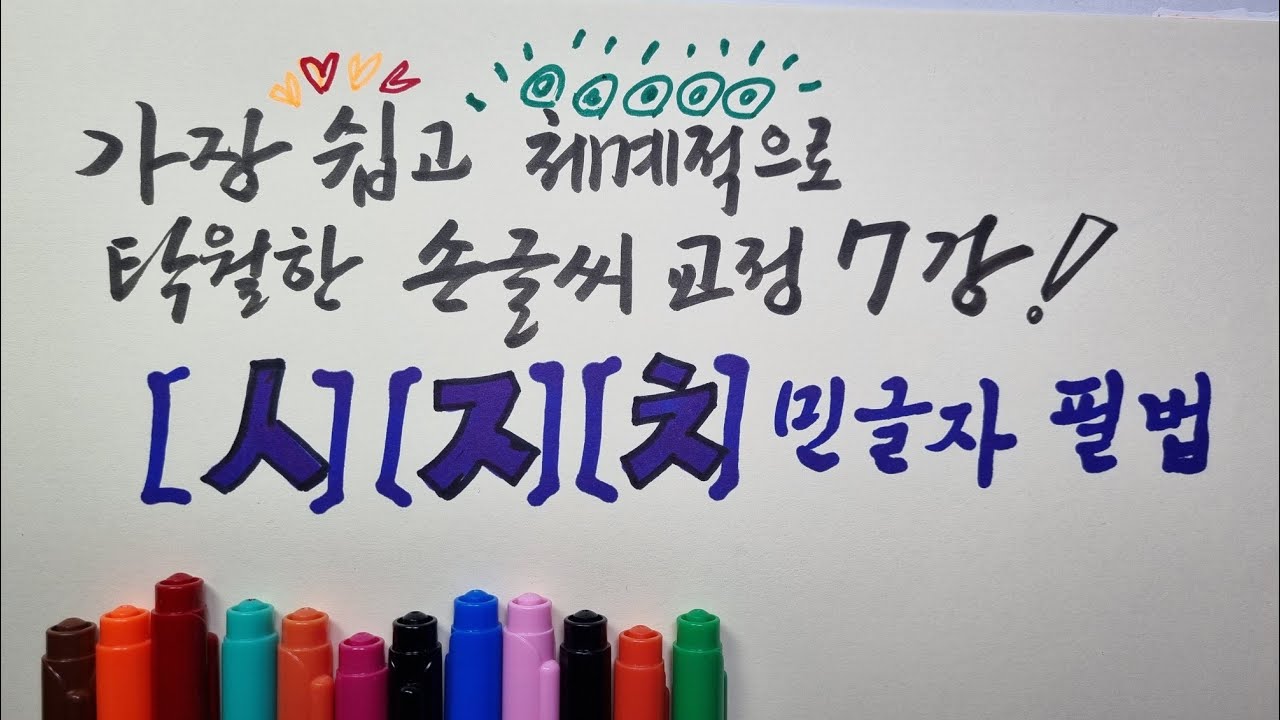 가장 쉽고 체계적으로
탁월한 손글씨 교정 7강!
[ㅅ][ㅈ][ㅊ] 민글자 필법